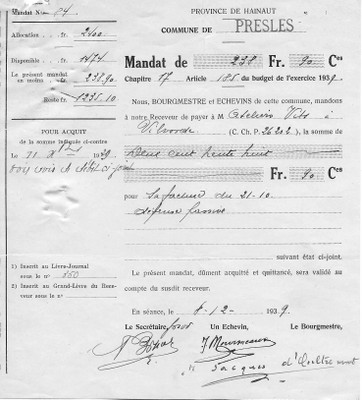 Mandat N° 84
PROVINCE DE HAINAUT
COMMUNE DE PRESLES
Allocation . . fr. 2400
Disponible . . fr. 1474
Le présent mandat
en moins . . . 238.90
Reste fr. 1235.10
Mandat de 238 Fr. 90 Ces
Chapitre 17 Article 185 du budget de l'exercice 1939.
Nous, BOURGMESTRE et ECHEVINS de cette commune, mandons
à notre Receveur de payer à M Ateliers à
Vilvorde (C. Ch. P. 26202), la somme de
Deux cent trente huit
Fr. 90 Ces
POUR ACQUIT
de la somme indiquée ci-contre
le 11 1939
pour sa facture du 21-10
défense passive
suivant état ci-joint.
1) Inscrit au Livre-Journal
sous le n° 860
2) Inscrit au Grand-Livre du Rece-
veur sous le n°
Le présent mandat, dûment acquitté et quittancé, sera validé au
compte du susdit receveur.
En séance, le 8-12- 1939.
Le Secrétaire, Un Echevin, Le Bourgmestre,
Jacques d'Oultremont